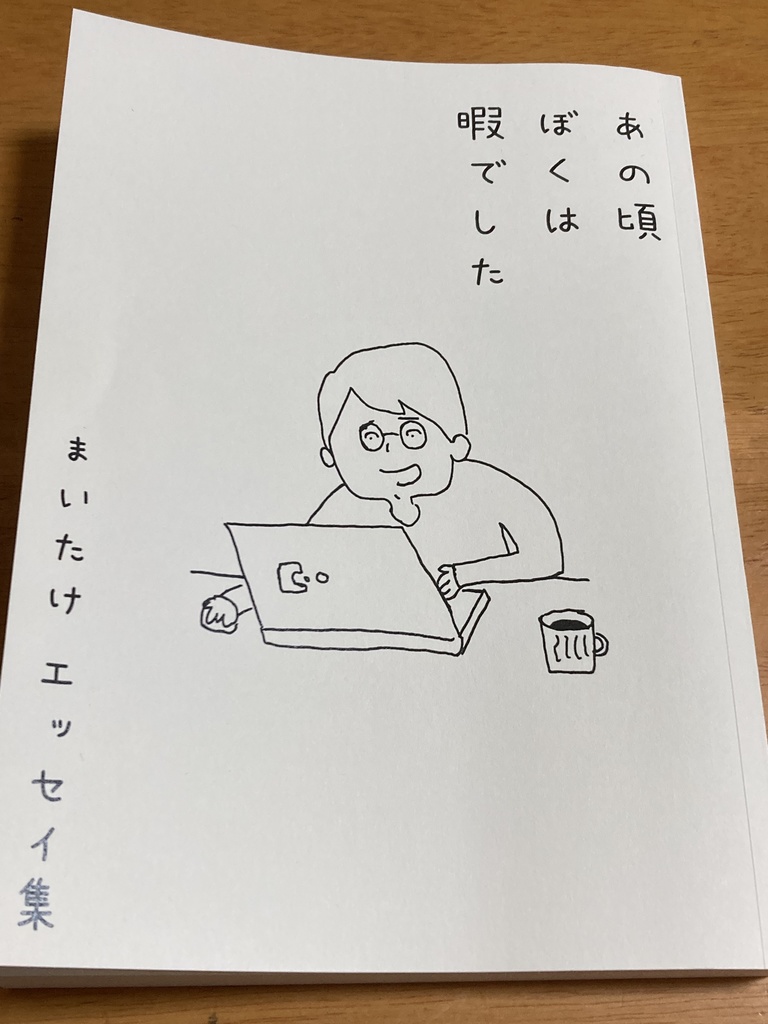 あの頃
ぼくは
暇でした
まいたけ エッセイ集